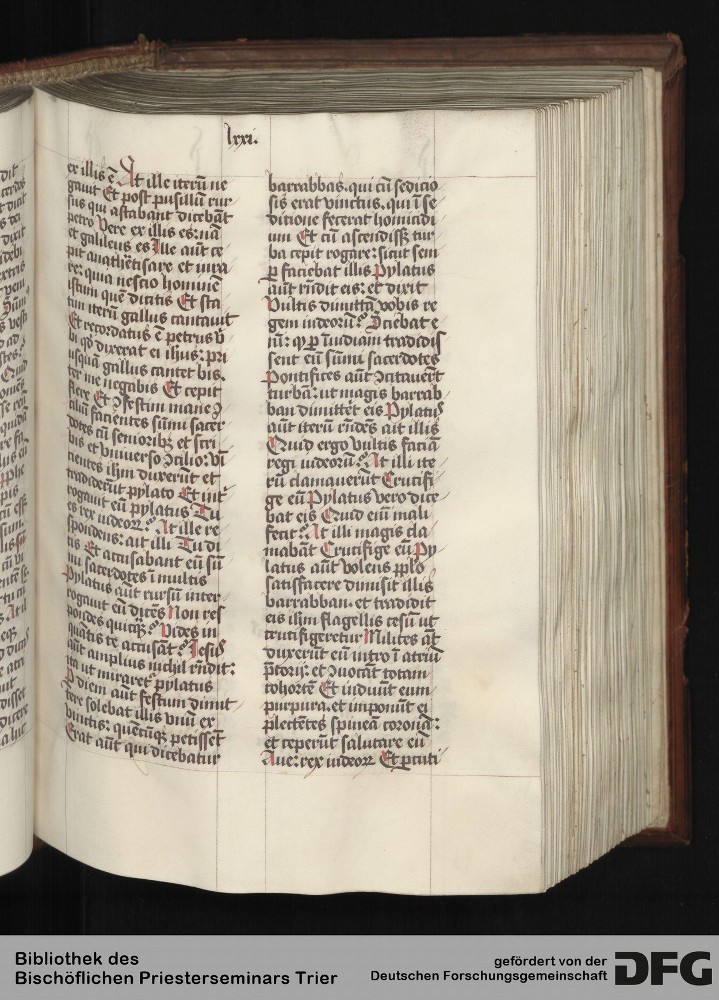 lxxi.
ex illis ē. At ille iterū ne
gauit Et post pusillū rur
sus qui astabant dicebāt
petro Vere ex illis es: nā
et galileus es Ille aūt ce
pit anathētisare et iura
re: quia nescio hominē
istum quē dicitis Et sta
tim iterū gallus cantauit
Et recordatus ē petrus v̄
bi qd̓ dixerat ei ihūs: pri
usquā gallus cantet bis.
ter me negabis Et cepit
flere Et ɔfestim mane ɔ
ciliū facientes sūmi sacer
dotes cū seniorib̄z et scri
bis et vniuerso ɔcilio: vī
cientes ihm duxerūt et
tradiderūt pylato Et int̄
rogauit eū pylatus Tu
es rex iudeoꝝ? At ille re
spondens: ait illi Tu di
cis Et accusabant eū sū
mi sacerdotes ī multis
Pylatus aūt rursū inter
rogauit eū dicēs Non res
pondes quicꝗ? Vides in
quātis te accusāt? Jesus
aūt amplius nichil rn̄dit:
ita ut miraret᷑ pylatus
P diem aūt festum dimit
tere solebat illis vnū ex
vinctis: quēcūqꝫ petissēt
Erat aūt qui dicebatur
barrabbas. qui cū sedicio
sis erat vinctus. qui ī se
ditione fecerat homicidi
um Et cū ascendissꝫ tur
ba cepit rogare: sicut sem
ꝑ faciebat illis Pylatus
aūt rn̄dit eis: et dixit
Vultis dimittā vobis re
gem iudeorū? Sciebat e
nī: ꝙ ꝑ īuidiam tradidis
sent eū sūmi sacerdotes
Pontifices aūt ɔcitauerūt
turbā: ut magis barrab
ban dimittēt eis Pylatꝰ
aūt iterū rn̄dēs ait illis
Quid ergo vultis faciā
regi iudeorū? At illi ite
rū clamauerūt Crucifi
ge eū Pylatus vero dice
bat eis Quid eim̄ mali
fecit? At illi magis cla
mabāt Crucifige eū Py
latus aūt volens pplo
satisfacere dimisit illis
barrabban. et tradidit
eis ihm flagellis cesū ut
crucifigeretur Milites aūt
duxerūt eū intro ī atriū
p̄torij: et ɔuocāt totam
cohortē Et induūt eum
purpura. et imponūt ei
plectētes spineā coronā:
et ceperūt salutare eū
Aue: rex iudeoꝝ Et ꝑcuti
Bibliothek des
Bischöflichen Priesterseminars Trier
gefördert von der
Deutschen Forschungsgemeinschaft
DFG